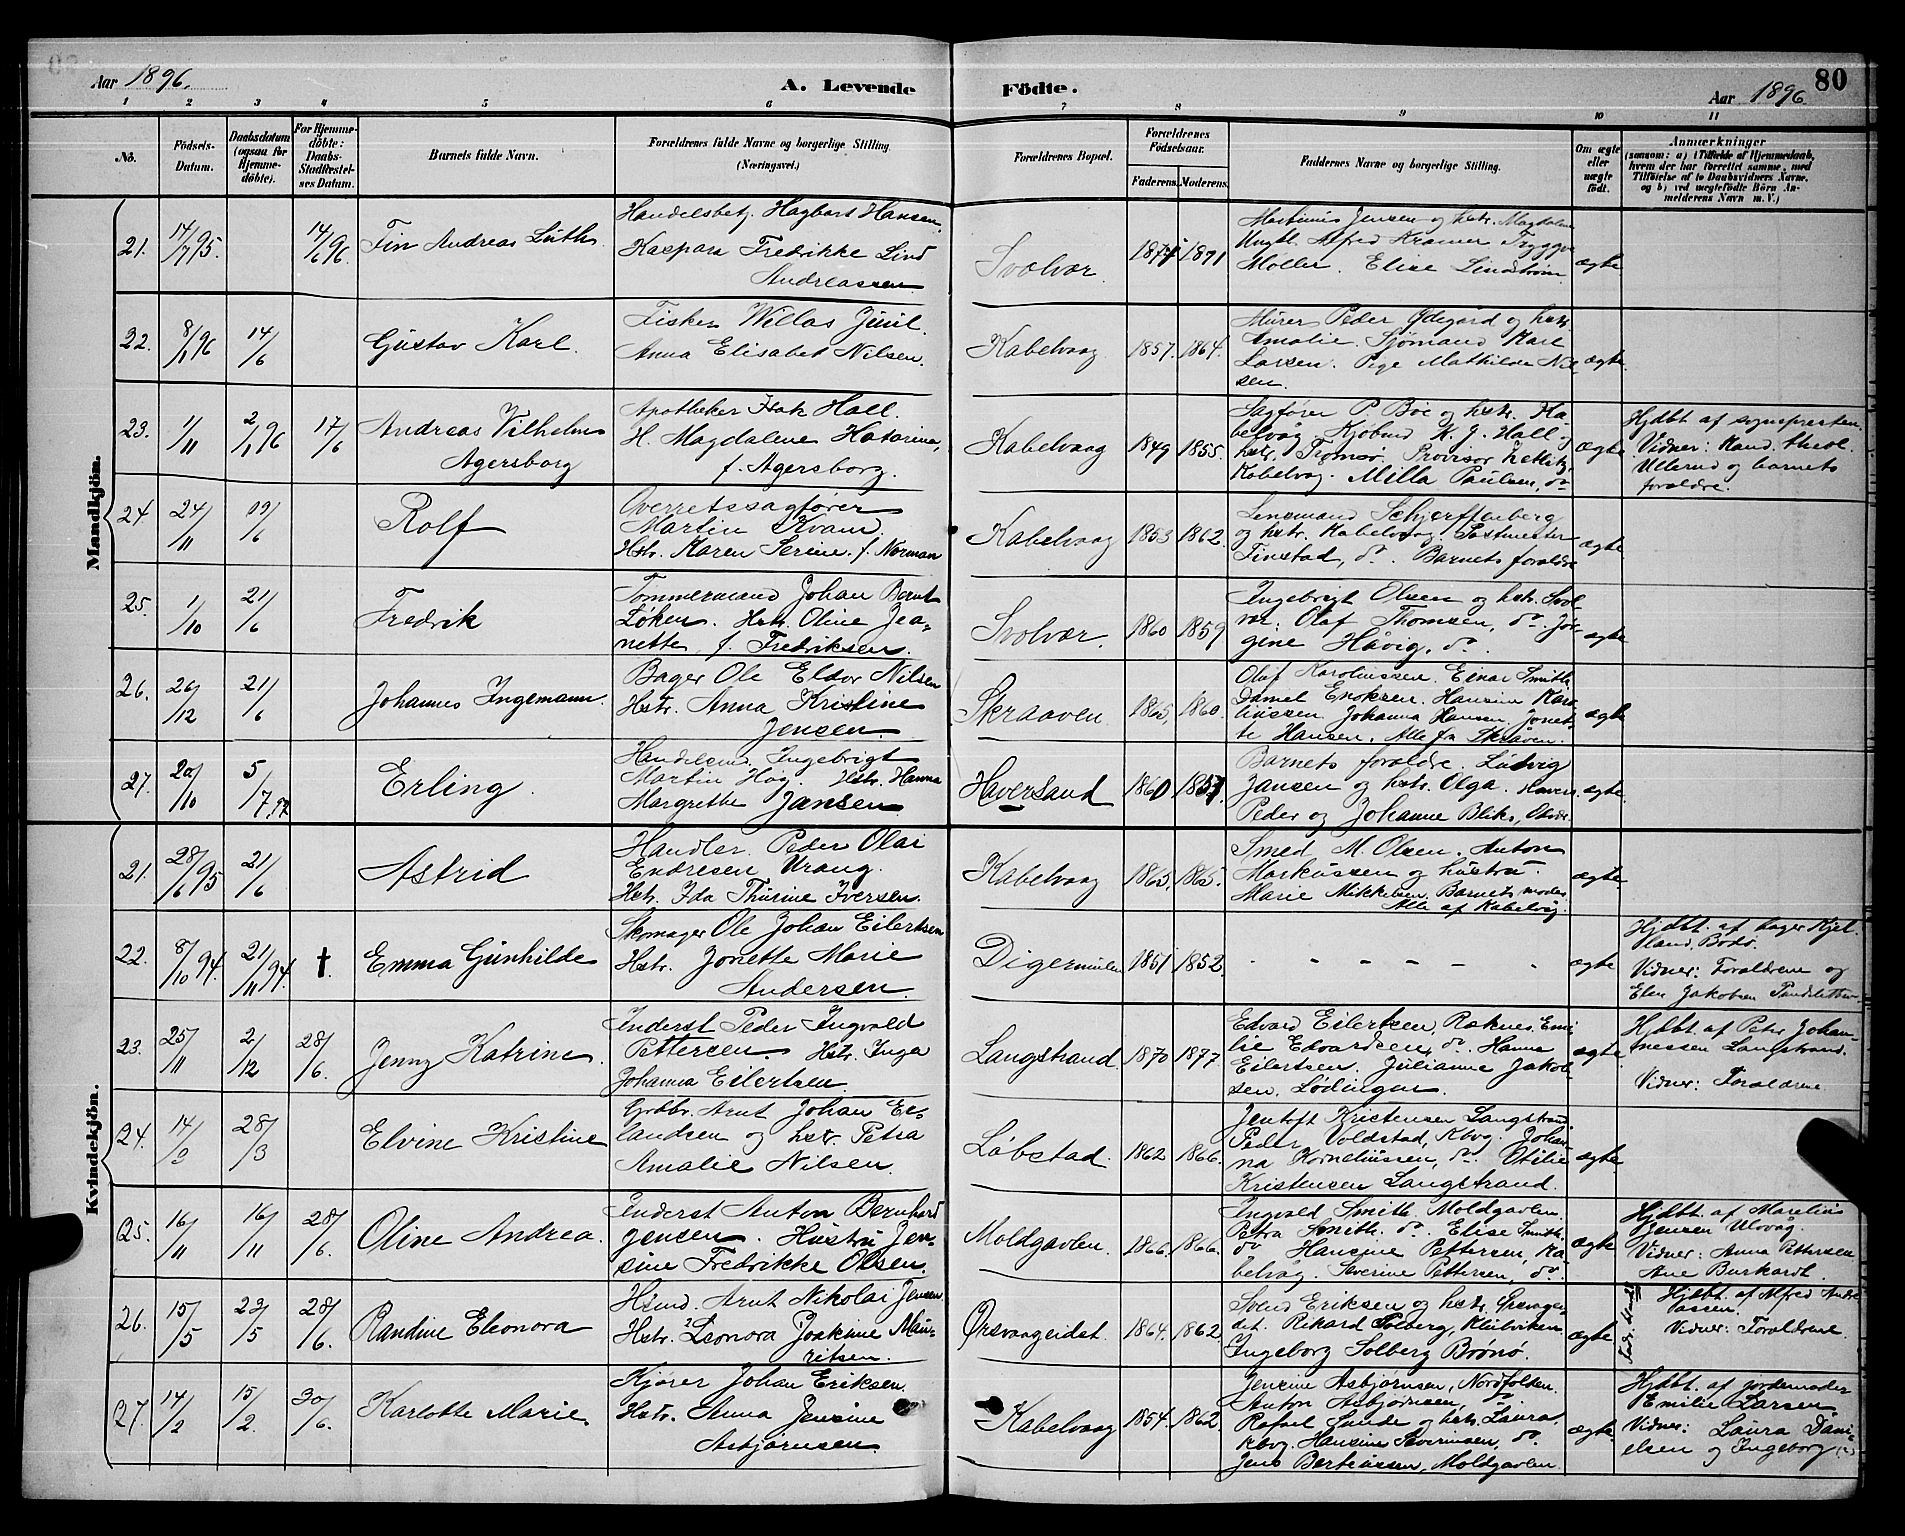 Aar 1896.
A. Levende
Födte.
80
Aar 1896
1 2 3 4 5 6 7 8 9 10 11
No.
Födsels-
Datum.
Daabsdatum
(ogsaa for
Hjemme-
döbte).
For Hjemme-
döbte:
Daabs-
Stadfæstel-
ses Datum.
Barnets fulde Navn.
Forældrenes fulde Navne og borgerlige Stilling.
(Næringsvei.)
Forældrenes Bopæl.
Forældrenes
Födselsaar.
Faderens.
Moderens.
Faddernes Navne og borgerlige Stilling.
Om ægte
eller
uægte
födt.
Anmærkninger
(saasom: a) i Tilfælde af Hjemmedaab,
hvem der har forrettet samme, med
Tilföielse af to Daabsvidners Navne,
og b) ved uægtefödte Börn An-
melderens Navn m. V.)
Mandkjön.
21. 14/7 95. 14/6 96. Fin Andreas Lüth
Handelsbetj. Hagbart Hansen
Kaspara Fredrikke Lind
Andreassen
Svolvær 1871 ægte
Martinus Jensen og hstr. Magdalene
Ungk. Alfred Kramer Tryggve
Møller. Elise Lindstrøm
22. 8/1 96 14/6 Gustav Karl.
Fisker Willas Juul.
Anna Elisabet Nilsen.
Kabelvaag 1857. 1864. ægte.
Murer Peder Ødegård og hstr.
Amalie. Sjømand Karl
Larsen. Pige Mathilde Nil
sen.
23. 1/11 2/1 96 17/6 Andreas Vilhelm
Agersborg
Apotheker Isak Hall.
H. Magdalene Katarina,
f. Agersborg.
Kabelvaag 1849 1855. ægte
Sagfører P. Bøe og hstr. Ka-
belvåg. Kjøbmd K. J. Hall og
hstr. Tromsø. Provisor
Kabelvåg. Milla Paulsen, do
Hjdbt af sognepresten.
Vidner: Kand. theol.
Ullerud og barnets
forældre.
24. 24/11 19/6 Rolf
Overretssagfører
Martin Kvam
Hstr. Karen Serine. f. Norman
Kabelvaag 1853 1862. ægte
Lensmand Schjerffenberg
og hstr. Kabelvåg. Postmester
Finstad, do. Barnets forældre
25. 1/10 21/6 Fredrik
Tømmermand Johan Bernt
Løken. Hstr. Oline Jea-
nette f. Fredriksen.
Svolvær 1860 1859 ægte
Ingebrigt Olsen og hstr. Svol-
vær. Olaf Thomsen, do. Jør-
gine Håvig, do.
26. 26/12 21/6 Johannes Ingemann.
Bager Ole Eldor Nilsen
Hstr. Anna Kristine
Jensen.
Skraaven 1865, 1860. ægte
Olaf Karoliussen. Einar Smith
Daniel Enoksen. Hansine Karo
liussen. Johanna Hansen. Jonet-
te Hansen. Alle fra Skråven.
27. 20/10 5/7 97 Erling.
Handelsmd. Ingebrigt
Martin Hag. Hstr. Hanna
Margrethe Jansen
Haversand 1860. 1857. ægte.
Barnets forældre. Ludvig
Jansen og hstr. Olga. Havers.
Peder og Johanne Bliks,
Kvindekjön.
21. 28/6 95 21/6 Astrid
Handler. Peder Olai
Endresen Vrang.
Hstr. Ida Thurine Iversen.
Kabelvaag 1863. 1865. ægte
Smed M. Olsen. Anton
Markussen og hustru.
Marie Mikkelsen. Barnets moder
Alle af Kabelvåg.
22. 8/10 94. 21/11 94. † Emma Gunhilde
Skomager Ole Johan Eilertsen
Hstr. Jonette Marie
Andersen.
Digermulen 1851 1852. - - - - - - ægte
Hjdbt. af bager Kjel-
land, Bodø.
Vidner: Forældrene og
Elen Jakobsen
23. 25/11 2/12 28/6. Jenny Katrine.
Inderst Peder Ingvald
Pettersen. Hstr. Inga
Johanna Eilertsen.
Langstrand 1870 1877. ægte
Edvard Eilertsen. Raknes. Emi
lie Edvardsen, do. Hanna
Eilertsen. Julianne Jakob-
sen. Lødingen
Hjdbt. af Peter Johan-
nessen Langstrand.
Vidner: Forældrene
24. 14/2 28/3 Elvine Kristine
Grdbr. Arnt Johan Er-
landsen og hstr. Petra
Amalie Nilsen.
Løbstad. 1862 1866. ægte
Jentoft Kristensen Langstrand
Peder Voldstad, Kbvg. Johan-
na Korneliussen, do. Otilie
Kristensen Langstrand.
25. 16/11 16/11 28/6. Oline Andrea.
Inderst Anton Bernhard
Jensen. Hustru Jen-
sine Fredrikke Olsen.
Moldgavlen. 1866. 1866. ægte
Ingvald Smith. Moldgavlen
Petra Smith. do. Elise Smith
do Hansine Pettersen, Ka
belvåg. Severine Pettersen, do.
Hjdbt. af Marelius
Jensen Ulvåg.
Vidner: Anna Pettersen
Ane Burkardt.
26. 15/5 23/5 28/6. Randine Eleonora
Hsmd. Arnt Nikolai Jensen
Hstr. Leonora Joakime Mau-
ritsen.
Ørsvaageidet. 1864. 1862 ægte
Svend Eriksen og hstr. Ørsvågei
det. Rikard Solberg,
Ingeborg Solberg Brønø.
Hjdbt. af Alfred Andre
assen.
Vidner: Forældrene
27. 14/2 15/2. 30/6. Karlotte Marie.
Kjører Johan Eriksen.
Hstr. Anna Jensine
Asbjørnsen.
Kabelvaag 1854. 1862. ægte.
Jensine Asbjørnsen, Nordfolden.
Anton Asbjørnsen, do.
Rafael Sunde og hstr. Laura.
Kbvg. Hansine Severinsen, do.
Jens Berteussen, Moldgavlen.
Hjdbt. af jordemoder
Emilie Larsen
Vidner: Laura Dani-
elsen og Ingeborg (?)